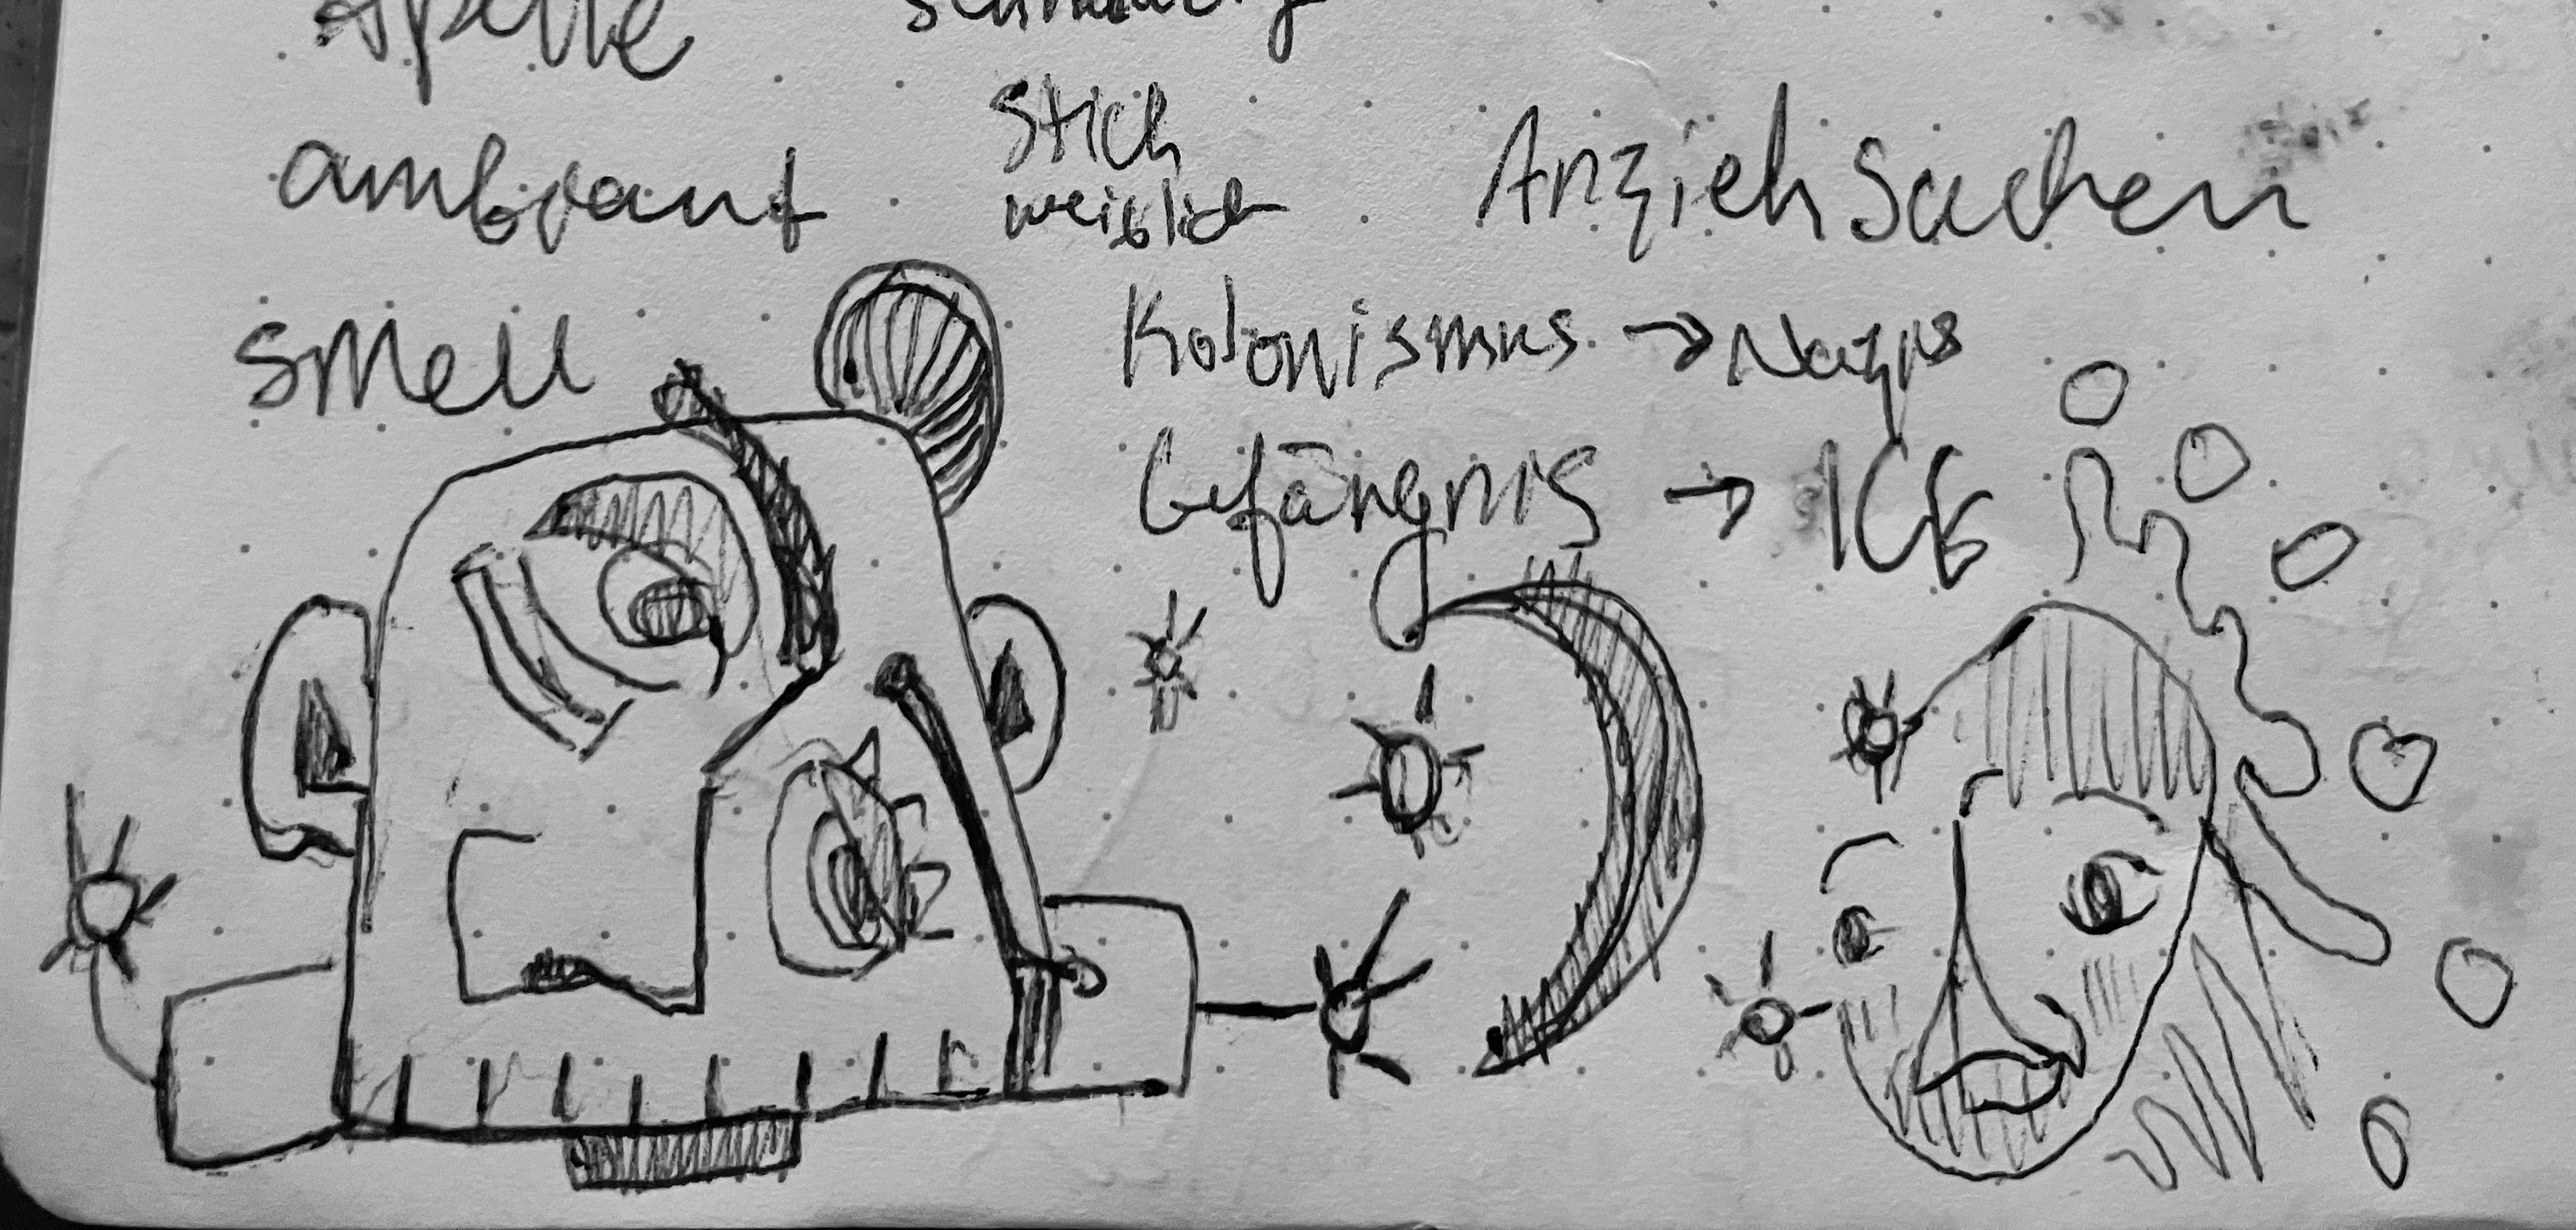 ambrant
Stich
weiblich
Anziehsachen
smell
Kolonismus → Nazis
Gefängnis → ICE